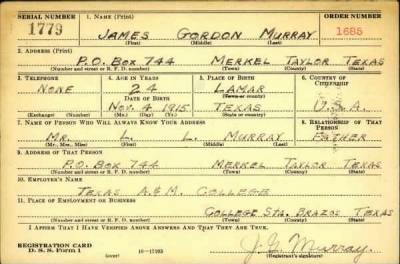 SERIAL NUMBER 1. NAME (Print) ORDER NUMBER
1779 JAMES GORDON MURRAY 1685
(First) (Middle) (Last)
2. ADDRESS (Print)
P.O. BOX 744 MERKEL TAYLOR TEXAS
(Number and street or R. F. D. number) (Town) (County) (State)
3. TELEPHONE 4. AGE IN YEARS 5. PLACE OF BIRTH 6. COUNTRY OF CITIZENSHIP
NONE 24 LAMAR
DATE OF BIRTH (Town or county)
NOV. 4 1915 TEXAS U.S.A.
(Exchange) (Number) (Mo.) (Day) (Yr.) (State or country)
7. NAME OF PERSON WHO WILL ALWAYS KNOW YOUR ADDRESS 8. RELATIONSHIP OF THAT PERSON
MR. L. L. MURRAY FATHER
(Mr., Mrs., Miss) (First) (Middle) (Last)
9. ADDRESS OF THAT PERSON
P.O. BOX 744 MERKEL TAYLOR TEXAS
(Number and street or R. F. D. number) (Town) (County) (State)
10. EMPLOYER'S NAME
TEXAS A.&M. COLLEGE
11. PLACE OF EMPLOYMENT OR BUSINESS
COLLEGE STA. BRAZOS TEXAS
(Number and street or R. F. D. number) (Town) (County) (State)
I AFFIRM THAT I HAVE VERIFIED ABOVE ANSWERS AND THAT THEY ARE TRUE.
REGISTRATION CARD J. G. Murray.
D. S. S. Form 1 (over) 16-17105 (Registrant's signature)